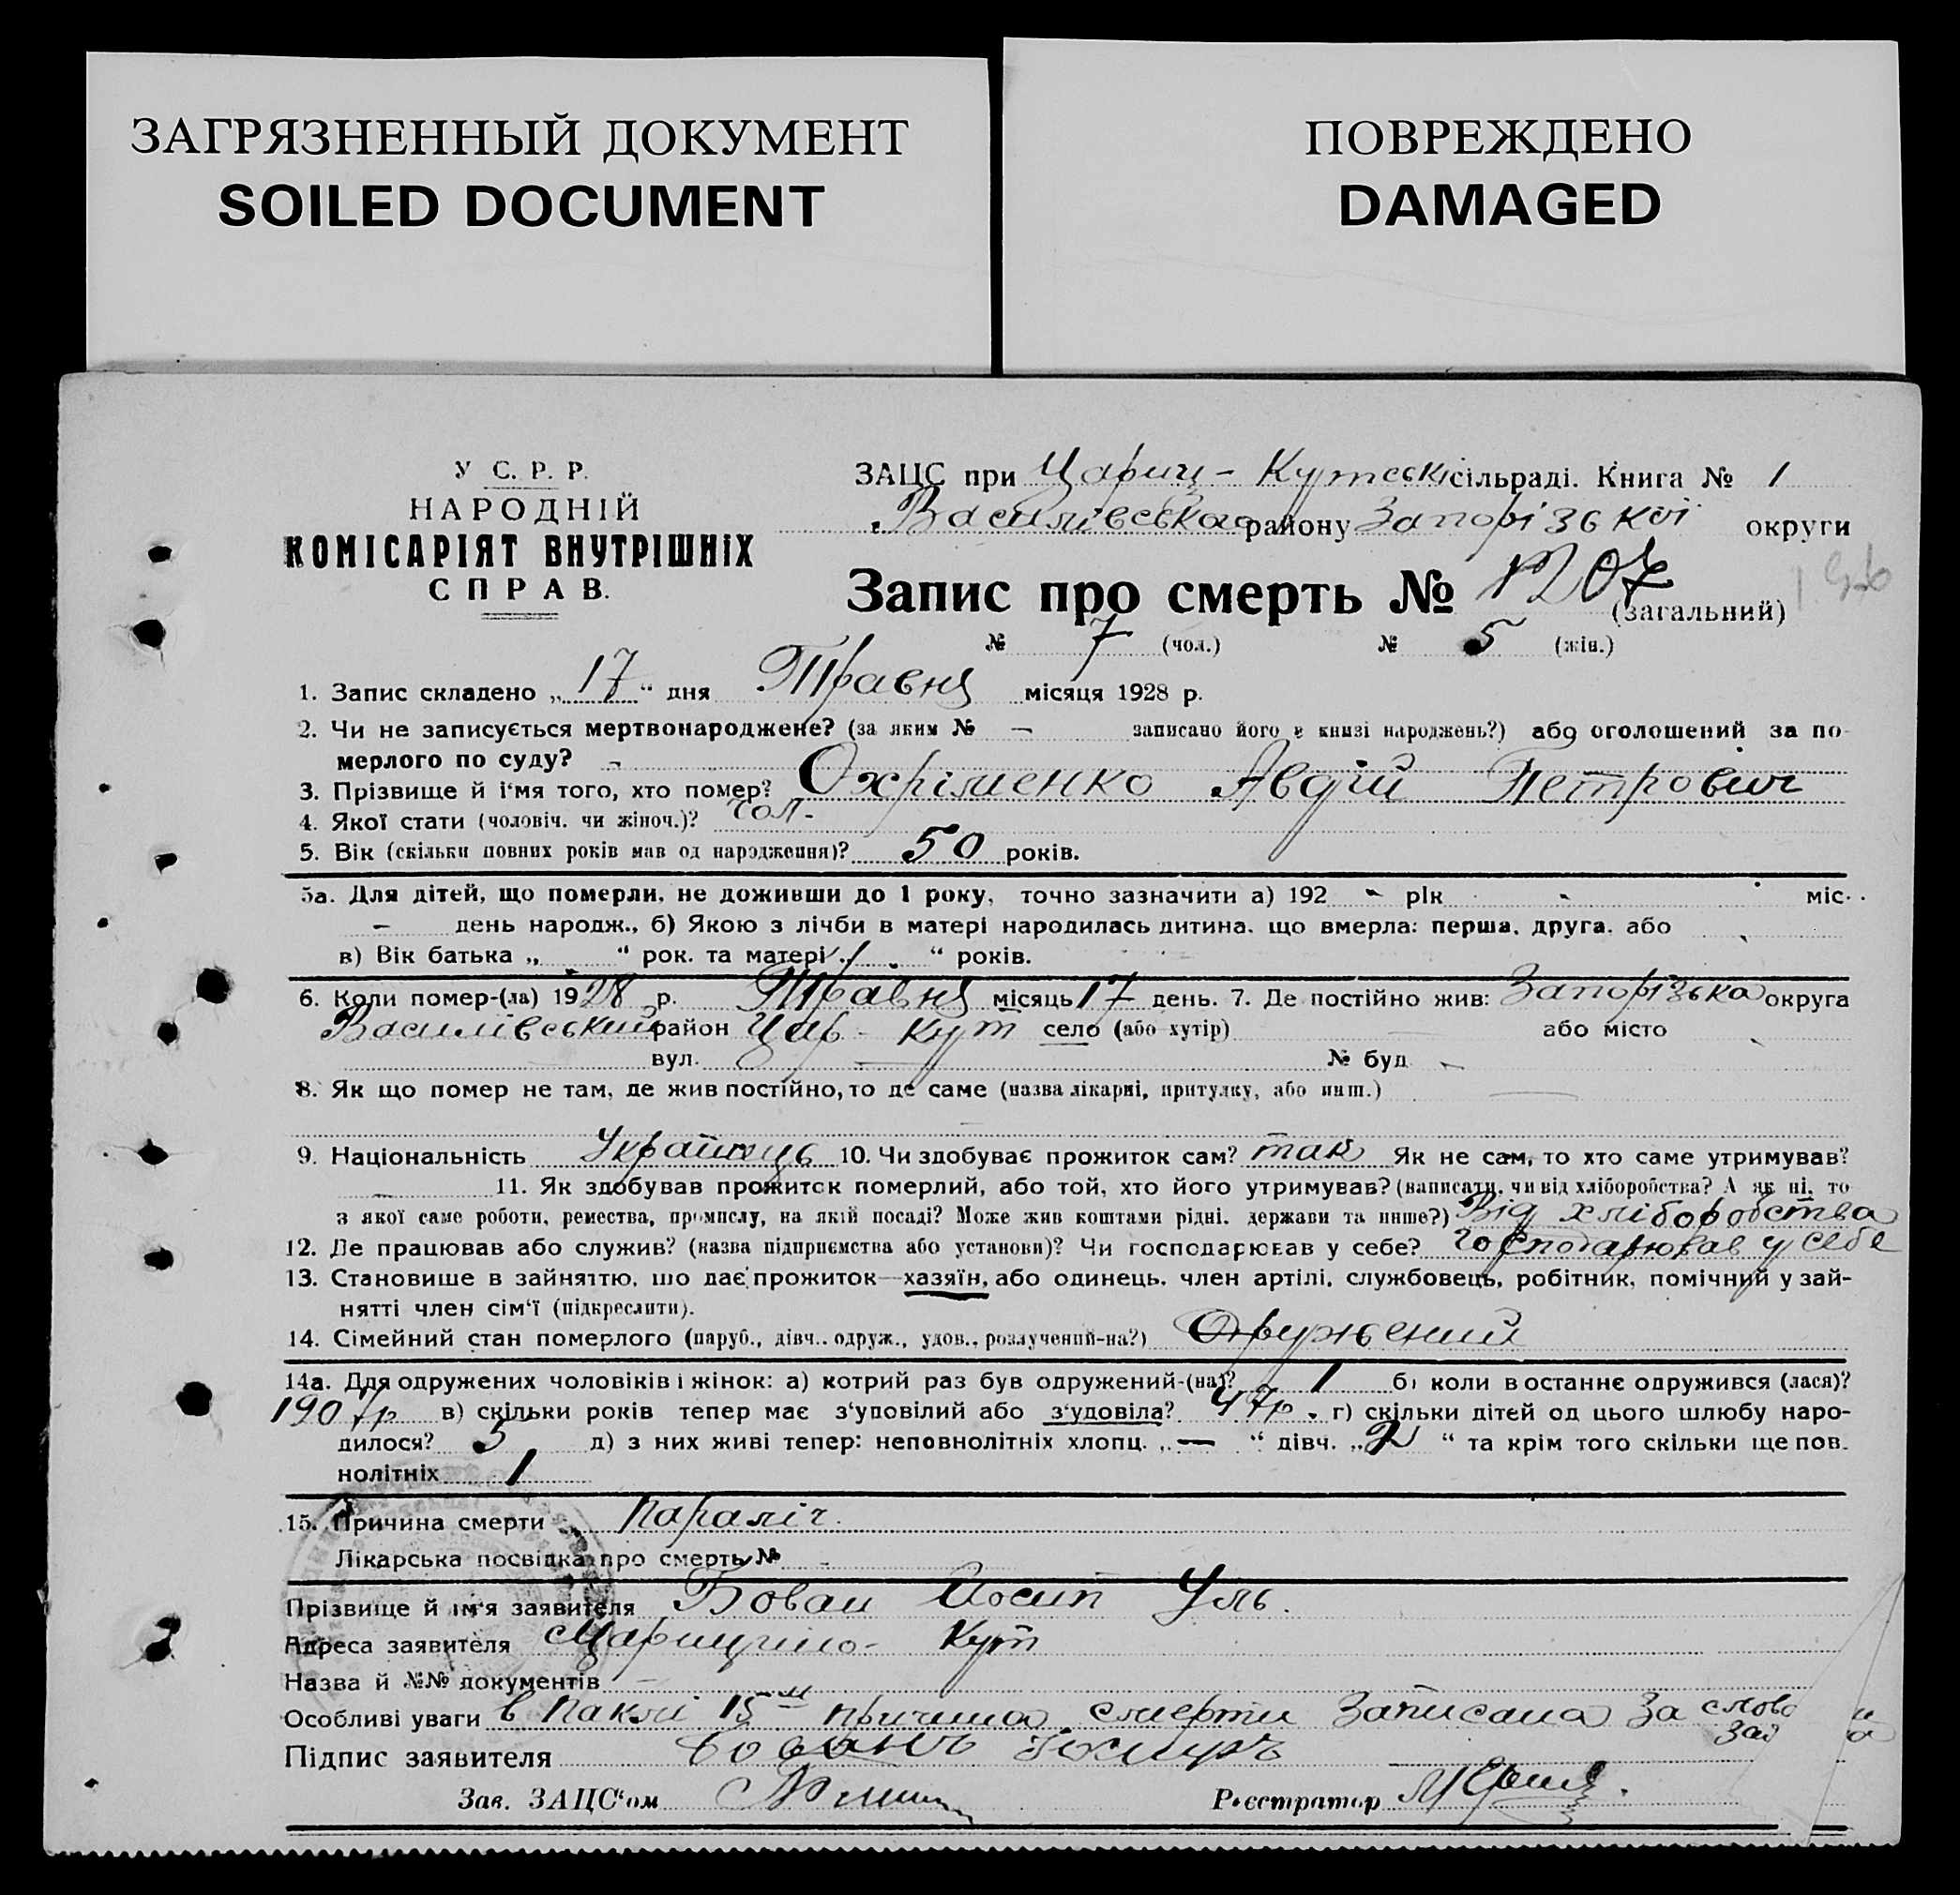 ЗАГРЯЗНЕННЫЙ ДОКУМЕНТ
SOILED DOCUMENT
ПОВРЕЖДЕНО
DAMAGED
У С. Р. Р.
НАРОДНІЙ
КОМІСАРІЯТ ВНУТРІШНІХ
СПРАВ.
ЗАЦС при Цариц-Кутській сільраді. Книга № 1
Василівського району Запорізької округи
Запис про смерть №
(загальний)
№ 7 (чол.) № 5 (жін.)
1. Запис складено „ 17 “ дня Травня місяця 1928 р.
2. Чи не записується мертвонароджене? (за яким № – записано його в книзі народжень?) або оголошений за по-
мерлого по суду? –
3. Прізвище й і‘мя того, хто помер? Охріменко Авдій Петрович
4. Якої стати (чоловіч. чи жіноч.)? чол.
5. Вік (скільки повних років мав од народження)? 50 років.
5а. Для дітей, що померли, не доживши до 1 року, точно зазначити а) 192 - рік - міс.
– день народж., б) Якою з лічби в матері народилась дитина, що вмерла: перша, друга, або
в) Вік батька „ “ рок. та матері „ “ років.
6. Коли помер-(ла) 1928 р. Травня місяць 17 день. 7. Де постійно жив: Запорізька округа
Василівський район Цар-Кут село (або хутір) — або місто
вул. — № буд –
8. Як що помер не там, де жив постійно, то де саме (назва лікарні, притулку, або инш.) —
9. Національність Українець 10. Чи здобуває прожиток сам? так Як не сам, то хто саме утримував?
– 11. Як здобував прожиток померлий, або той, хто його утримував? (написати, чи від хліборобства? А як ні, то
з якої саме роботи, ремества, промислу, на якій посаді? Може жив коштами рідні, держави та инше?) Від хліборобства
12. Де працював або служив? (назва підприємства або установи)? Чи господарював у себе? Господарював у себе
13. Становище в зайняттю, що дає прожиток—хазяїн, або одинець, член артілі, службовець, робітник, помічний у зай-
нятті член сім‘ї (підкреслити).
14. Сімейний стан померлого (паруб., дівч., одруж., удов., розлучений-на?) Одружений
14а. Для одружених чоловіків і жінок: а) котрий раз був одружений-(на)? 1 б) коли в останнє одружився (лася)?
1907р в) скільки років тепер має з‘удовілий або з‘удовіла? 47р. г) скільки дітей од цього шлюбу наро-
дилося? 5 д) з них живі тепер: неповнолітніх хлопц. „ — “ дівч. „ 2 “ та крім того скільки ще пов-
нолітніх 1
15. Причина смерти Параліч.
Лікарська посвідка про смерть № -
Прізвище й ім‘я заявителя Бован Йосип Уль.
Адреса заявителя Царицино-Кут
Назва й №№ документів —
Особливі уваги в 15 причина смерти записана за слово
Підпис заявителя
Зав. ЗАЦС‘ом
Реєстратор